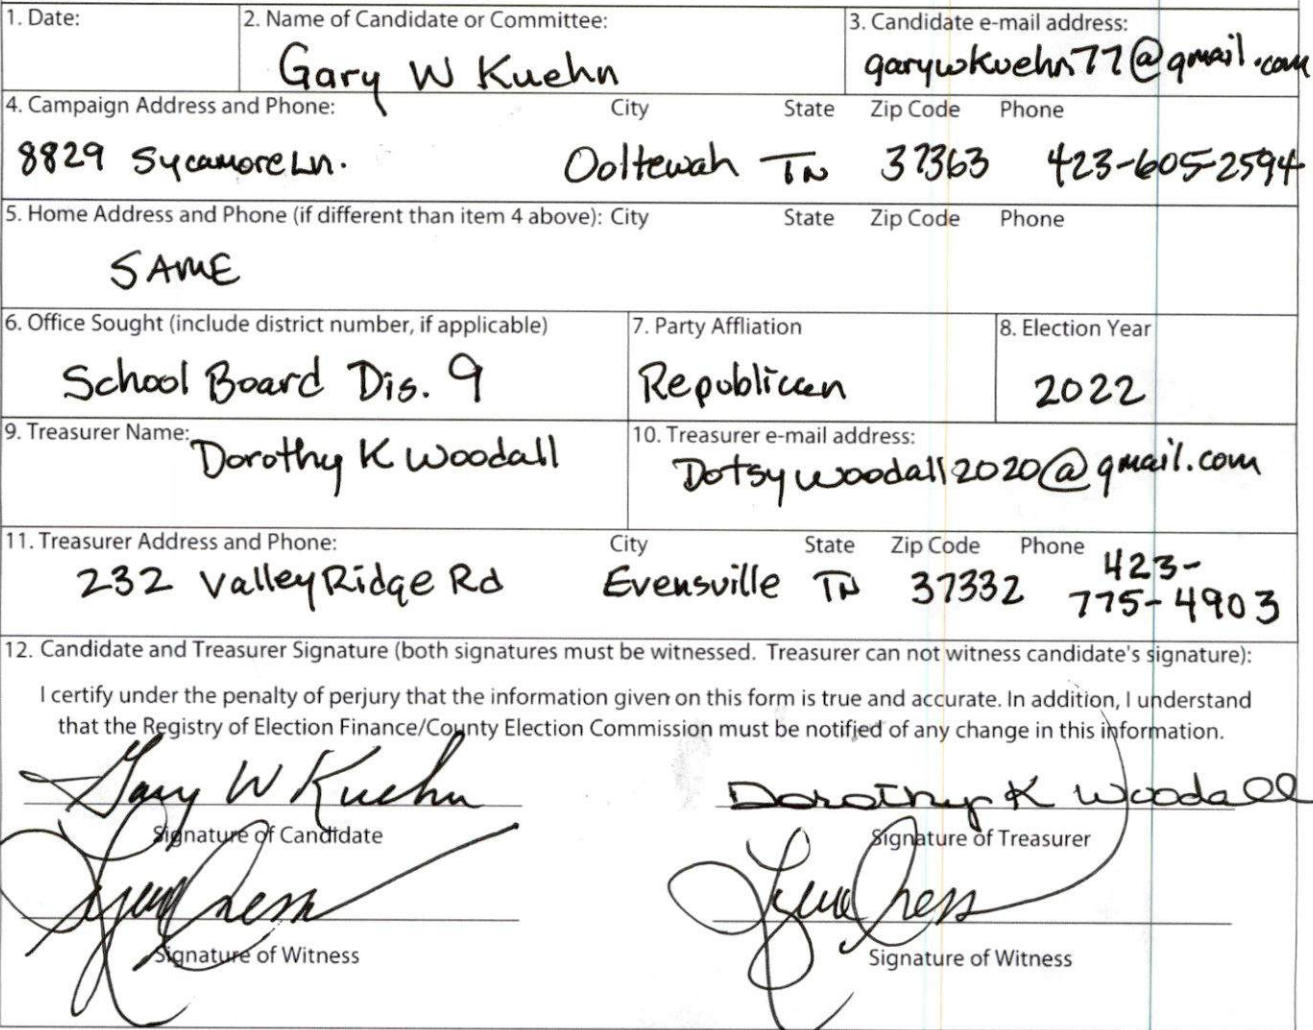 1. Date: 2. Name of Candidate or Committee: 3. Candidate e-mail address:
Gary W Kuehn garywkuehn77@gmail.com
4. Campaign Address and Phone: City State Zip Code Phone
8829 Sycamore Ln. Ooltewah TN 37363 423-605-2594
5. Home Address and Phone (if different than item 4 above): City State Zip Code Phone
SAME
6. Office Sought (include district number, if applicable) 7. Party Affliation 8. Election Year
School Board Dis. 9 Republican 2022
9. Treasurer Name: 10. Treasurer e-mail address:
Dorothy K Woodall Dotsywoodall2020@gmail.com
11. Treasurer Address and Phone: City State Zip Code Phone
232 Valley Ridge Rd Evensville TN 37332 423-
775-4903
12. Candidate and Treasurer Signature (both signatures must be witnessed. Treasurer can not witness candidate's signature):
I certify under the penalty of perjury that the information given on this form is true and accurate. In addition, I understand
that the Registry of Election Finance/County Election Commission must be notified of any change in this information.
Gary W Kuehn Dorothy K Woodall
Signature of Candidate Signature of Treasurer
Signature of Witness Signature of Witness